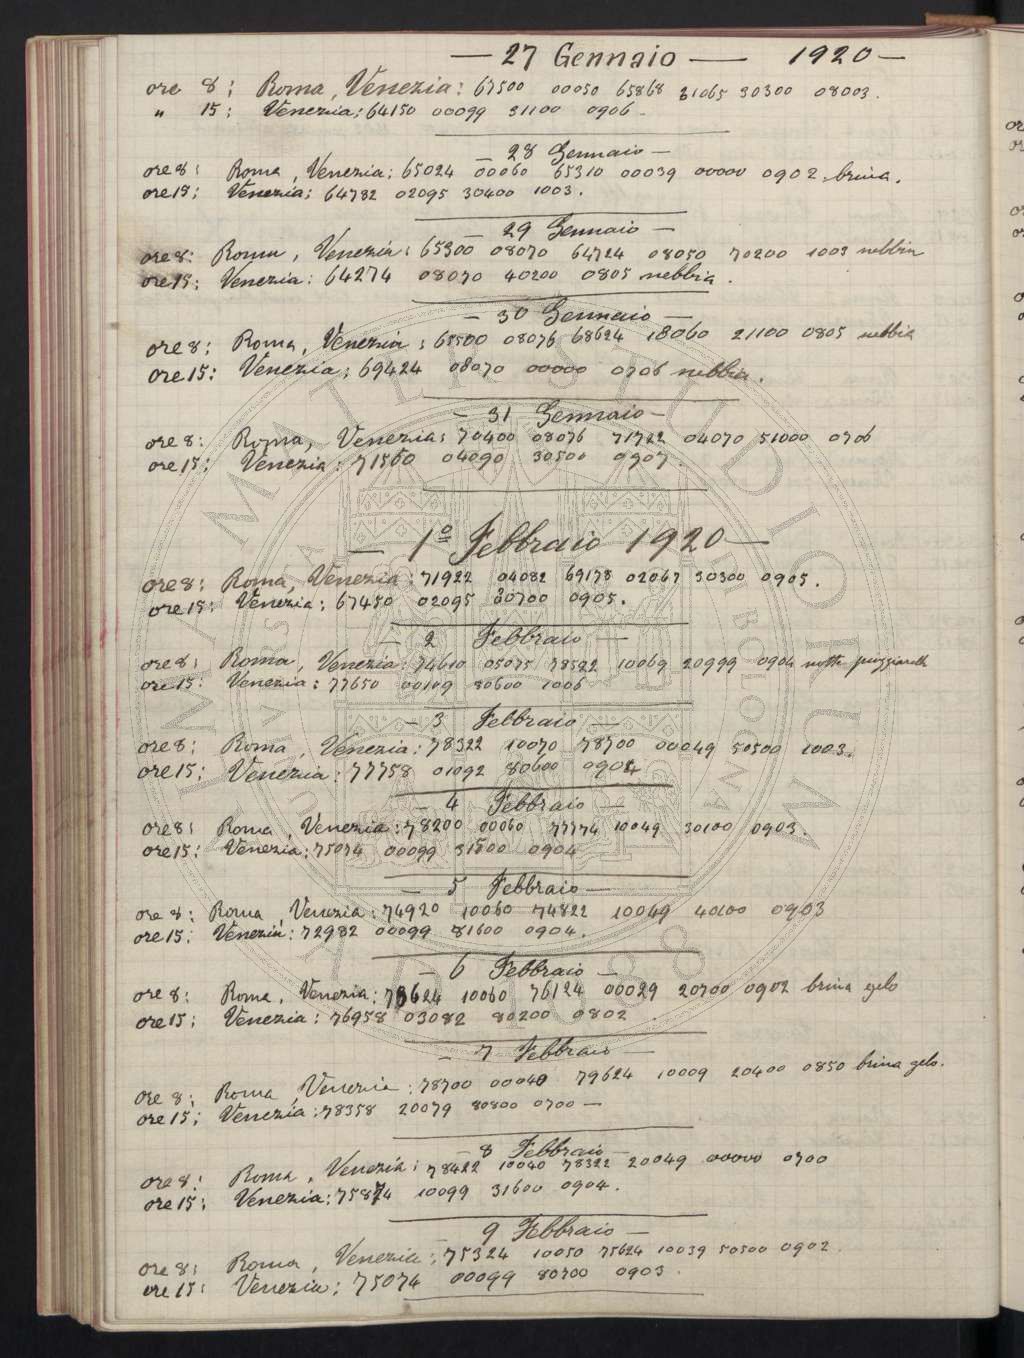 — 27 Gennaio — 1920 —
ore 8 : Roma, Venezia : 67500 00050 65868 31065 30300 08003.
" 15 : Venezia : 64150 00099 31100 0906
— 28 Gennaio —
ore 8 : Roma, Venezia : 65024 00060 65310 00039 00000 0902 brina.
ore 15 : Venezia : 64782 02095 30400 1003.
— 29 Gennaio —
ore 8 : Roma, Venezia : 65300 08070 64724 08050 70200 1003 nebbia
ore 15 : Venezia : 64274 08070 40200 0805 nebbia.
— 30 Gennaio —
ore 8 : Roma, Venezia : 65500 08076 68624 18060 21100 0805 nebbia
ore 15 : Venezia : 69424 08070 00000 0706 nebbia.
— 31 Gennaio —
ore 8 : Roma, Venezia : 70400 08076 71722 04070 51000 0706
ore 15 : Venezia : 71560 04090 30500 0907.
— 1º Febbraio 1920 —
ore 8 : Roma, Venezia : 71922 04082 69178 02067 30300 0905.
ore 15 : Venezia : 67450 02095 80700 0905.
— 2 Febbraio —
ore 8 : Roma, Venezia : 74610 05075 78522 10069 20999 0904 notte
ore 15 : Venezia : 77650 00109 80600 1006
— 3 Febbraio —
ore 8 : Roma, Venezia : 78322 10070 78700 00049 50500 1003.
ore 15 : Venezia : 77758 01092 80600 0904
— 4 Febbraio —
ore 8 : Roma, Venezia : 78200 00060 77774 10049 30100 0903.
ore 15 : Venezia : 75074 00099 31500 0904
— 5 Febbraio —
ore 8 : Roma, Venezia : 74920 10060 74822 10049 40100 0903
ore 15 : Venezia : 72982 00099 81600 0904.
— 6 Febbraio —
ore 8 : Roma, Venezia : 73624 10060 76124 00029 20700 0902 brina gelo
ore 15 : Venezia : 76958 03082 80200 0802
— 7 Febbraio —
ore 8 : Roma, Venezia : 78700 00040 79624 10009 20400 0850 brina gelo.
ore 15 : Venezia : 78358 20079 80800 0700 —
— 8 Febbraio —
ore 8 : Roma, Venezia : 78422 10040 78322 20049 00000 0700
ore 15 : Venezia : 75874 10099 31600 0904.
— 9 Febbraio —
ore 8 : Roma, Venezia : 75324 10050 75624 10039 50500 0902.
ore 15 : Venezia : 75074 00099 80700 0903.
ALMA MATER STUDIORUM
A.D. 1088